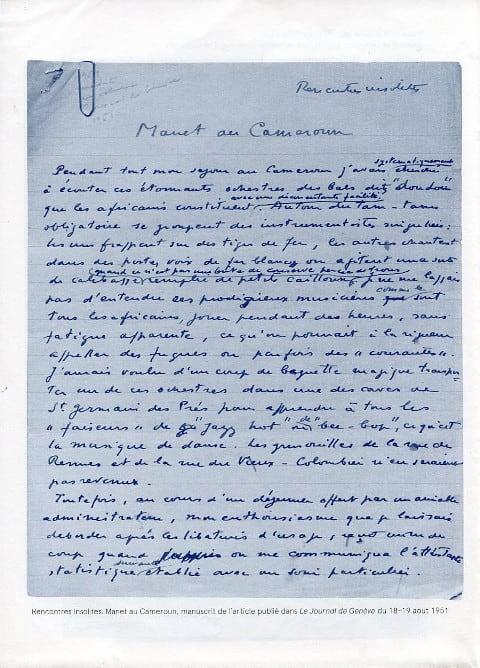 Rencontres insolites
Manet au Cameroun
systématiquement
Pendant tout mon séjour au Cameroun j'avais cherché
à écouter ces étonnants orchestres des bals dits "doudou"
que les africains constituent avec une déconcertante facilité. Autour du tam-tam
obligatoire se groupent des instrumentistes singuliers:
les uns frappent sur des tiges de fer, les autres chantent
dans des portes voix de fer blanc ou agitent une sorte
de calebasse remplie de petits cailloux,
quand ce n'est pas une boîte de conserve
pas d'entendre ces prodigieux musiciens comme le sont
tous les africains, jouer pendant des heures, sans
fatigue apparente, ce qu'on pourrait à la rigueur
appeller des fugues ou parfois des "courantes".
J'aurais voulu d'un coup de baguette magique transpor-
ter un de ces orchestres dans une des caves de
St Germain des Prés pour apprendre à tous les
"faiseurs" de "jazz hot" ou de "bee-bop", ce qu'est
la musique de danse. Les grenouilles de la rue de
Rennes et de la rue du Vieux-Colombier n'en seraient
pas revenus.
Toutefois, au cours d'un déjeuner offert par un aimable
administrateur, mon enthousiasme que je laissais
déborder après les libations d'usage, reçut un rude
coup quand on me communiqua
statistique suivante établie avec un soin particulier.
Rencontres insolites. Manet au Cameroun, manuscrit de l'article publié dans Le Journal de Genève du 18-19 aout 1951